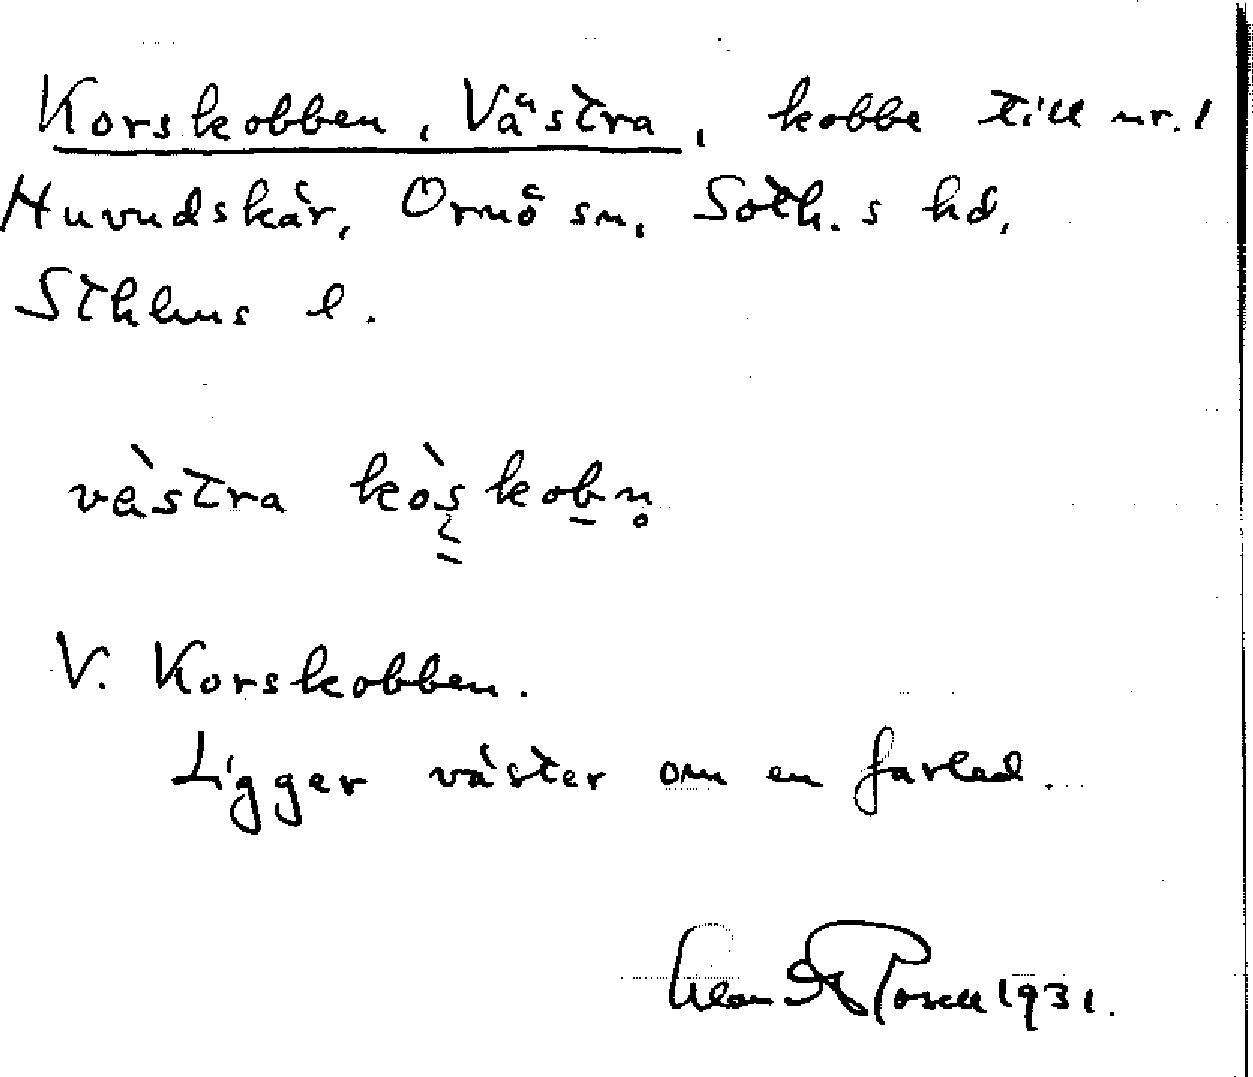 Korskobben, Västra, kobbe till nr. 1
Huvudskär, Ornö sn, Soth.s hd,
Sthlms l.
västra kòs̠kob̠n̥
V. Korskobben.
Ligger väster om en farled.
1931.